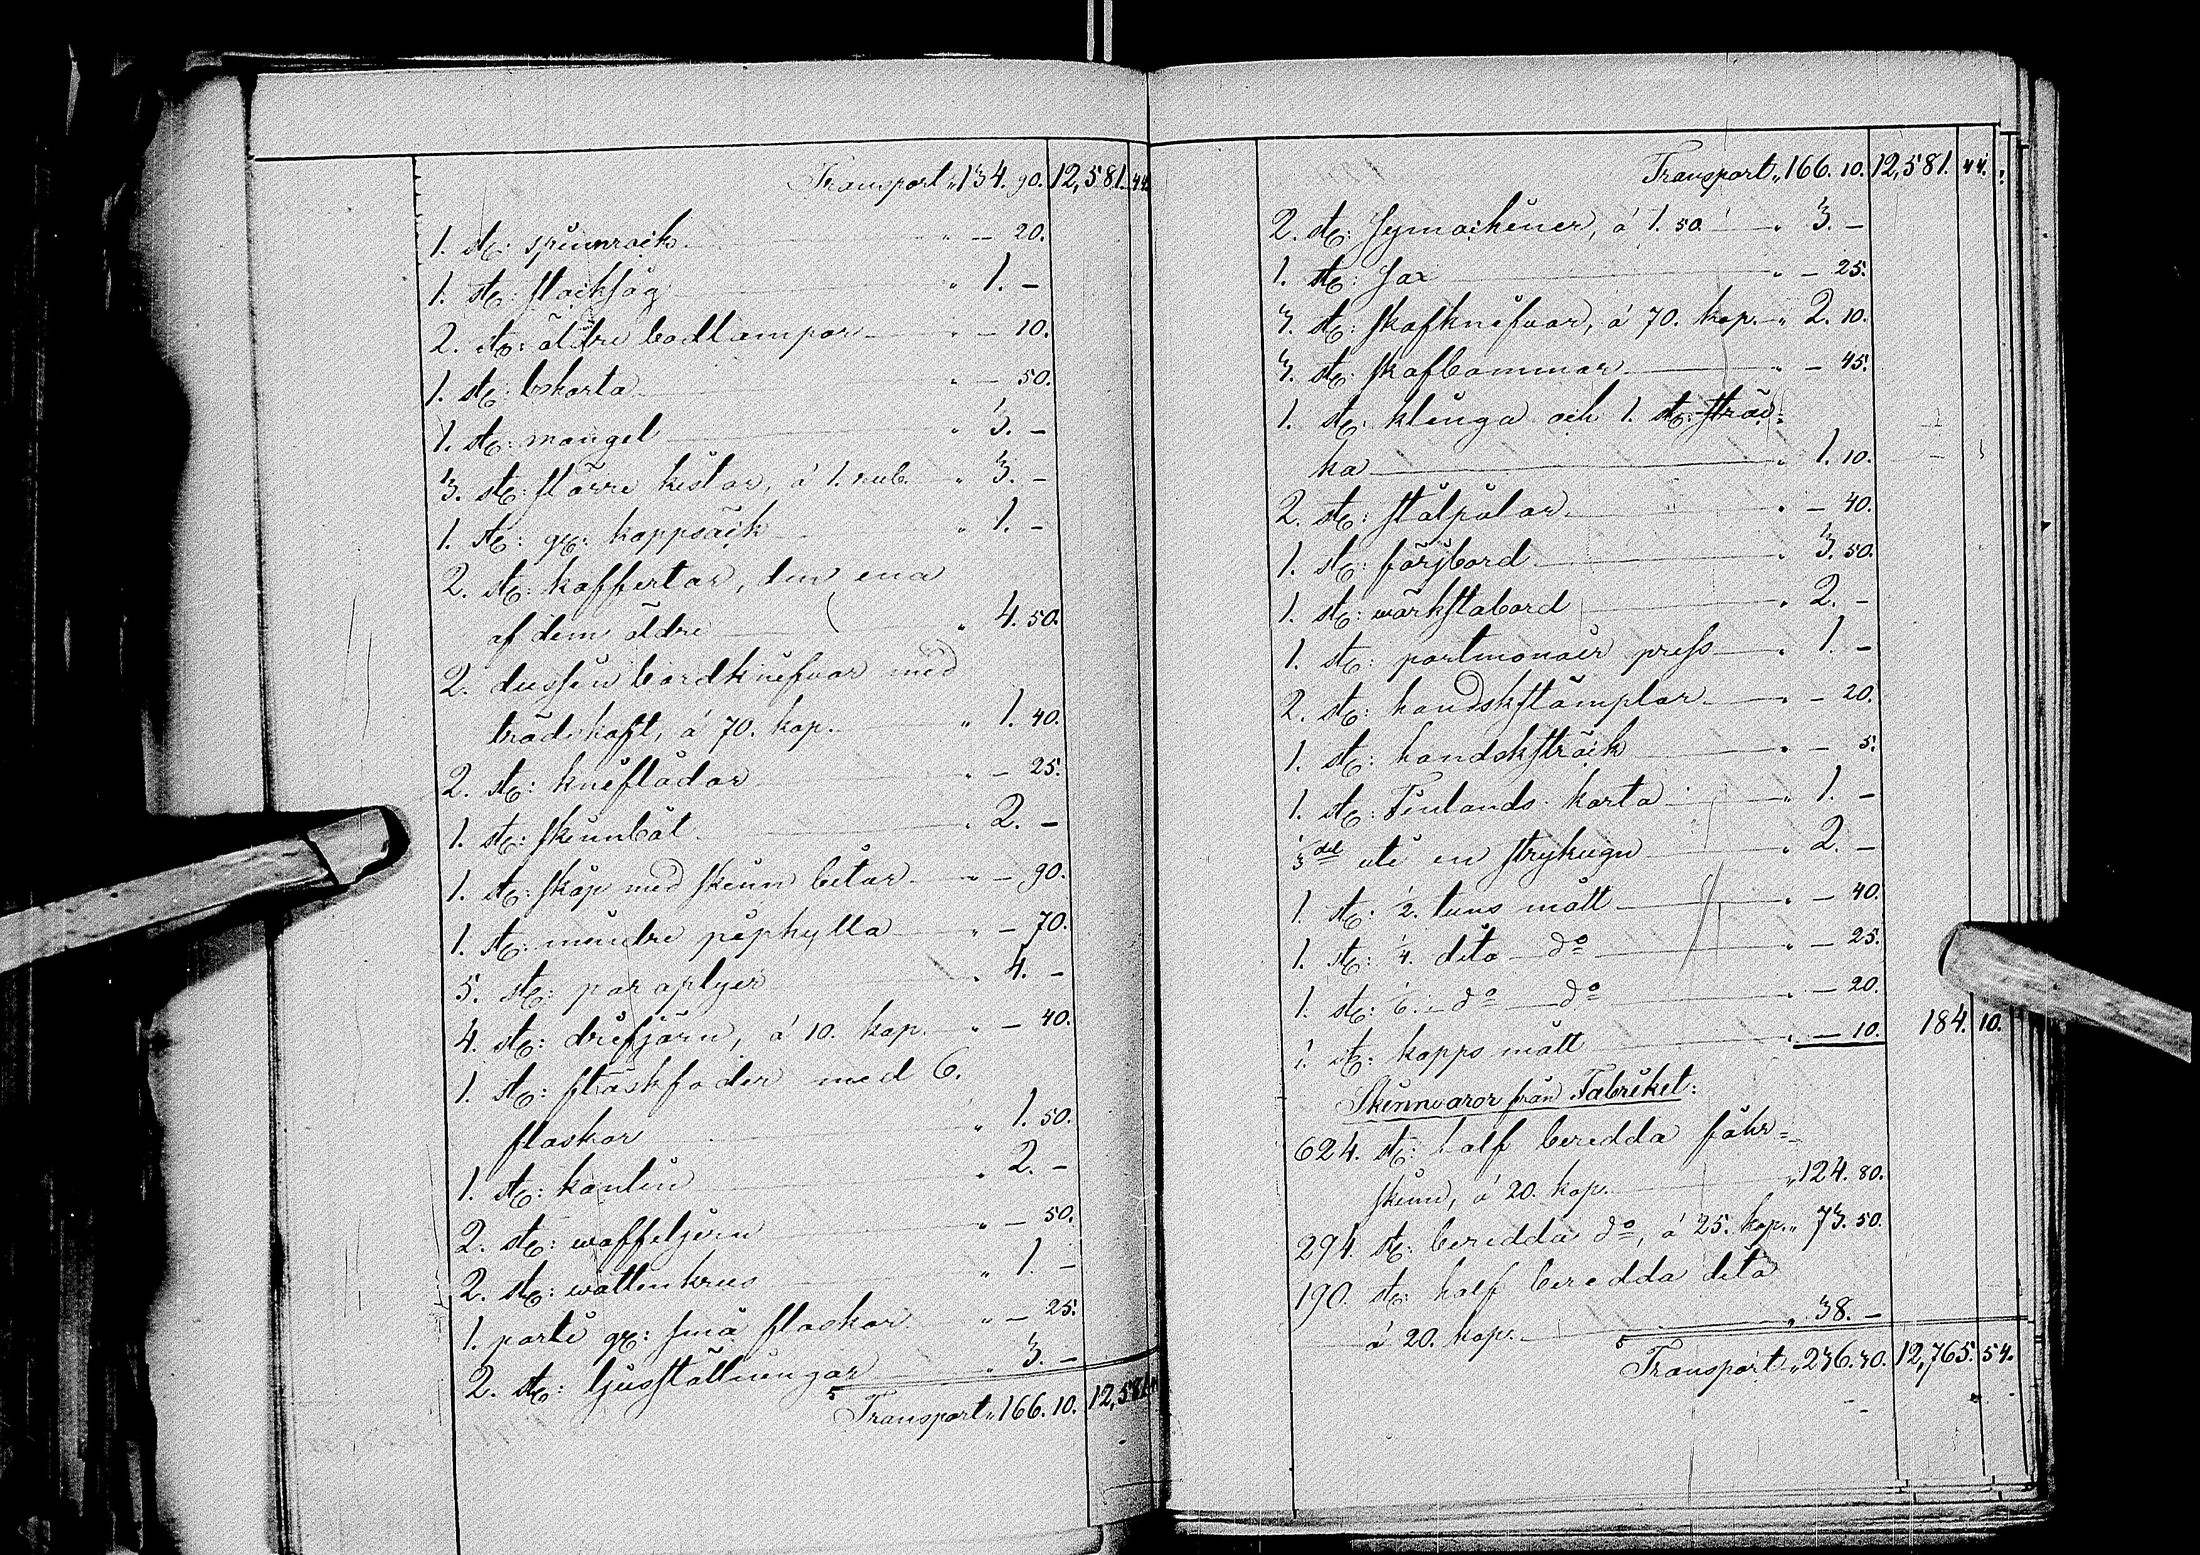 Transport „ 134. 90. 12,581. 44.
1. st: spinnrock „ — 20.
1. st: stocksåg „ 1. —
2. st: äldre bodlampor „ — 10.
1. st: karta „ — 50.
1. st: mangel „ 3. —
3. st: större kistor, á 1. rub. „ 3. —
1. st: gl: kappsäck „ 1. —
2. st: koffertar, den ena
af dem äldre „ 4. 50.
2. dussin bordknifvar med
trädskaft, á 70. kop. „ 1. 40.
2. st: kniflådor „ — 25.
1. st: skinnbåt „ 2. —
1. st: skåp med skinn bitar „ — 90.
1. st: mindre piphylla „ — 70.
5. st: paraplyer „ 4. —
4. st: drifjärn, á 10. kop. „ — 40.
1. st: flaskfoder med 6.
flaskor „ 1. 50.
1. st: kantin „ 2. —
2. st: waffeljern „ — 50.
2. st: wattenkrus „ 1. —
1. parti gl: små flaskor „ — 25.
2. st: ljusställningar „ 3. —
Transport „ 166. 10. 12,581.
Transport „ 166. 10. 12,581. 44.
2. st: symachiner, á 1. 50. „ 3. —
1. st: sax „ — 25.
3. st: skafknifvar, á 70. kop. „ 2. 10.
3. st: skafbommar „ — 45.
1. st: klinga och 1. st: sträc=
ka „ 1. 10.
2. st: stålpålar „ — 40.
1. st: färjbord „ 3. 50.
1. st: wärkstabord „ 2. —
1. st: portmonäer press „ 1. —
2. st: handskstämplar „ — 20.
1. st: handsksträck „ — 5.
1. st: Finlands karta „ 1. —
1/3 del uti en strykugn „ 2. —
1. st: 1/2. tuns mått „ — 40.
1. st: 1/4. dito do „ — 25.
1. st: 1/6. do do „ — 20.
1. st: kapps mått „ — 10. 184. 10.
Skinnvaror från Fabriket:
624. st: half beredda fåhr=
skinn, á 20. kop. „ 124. 80.
294. st: beredda do, á 25. kop. „ 73. 50.
190. st: half beredda dito
á 20. kop. „ 38. —
Transport „ 236. 30. 12,765. 54.